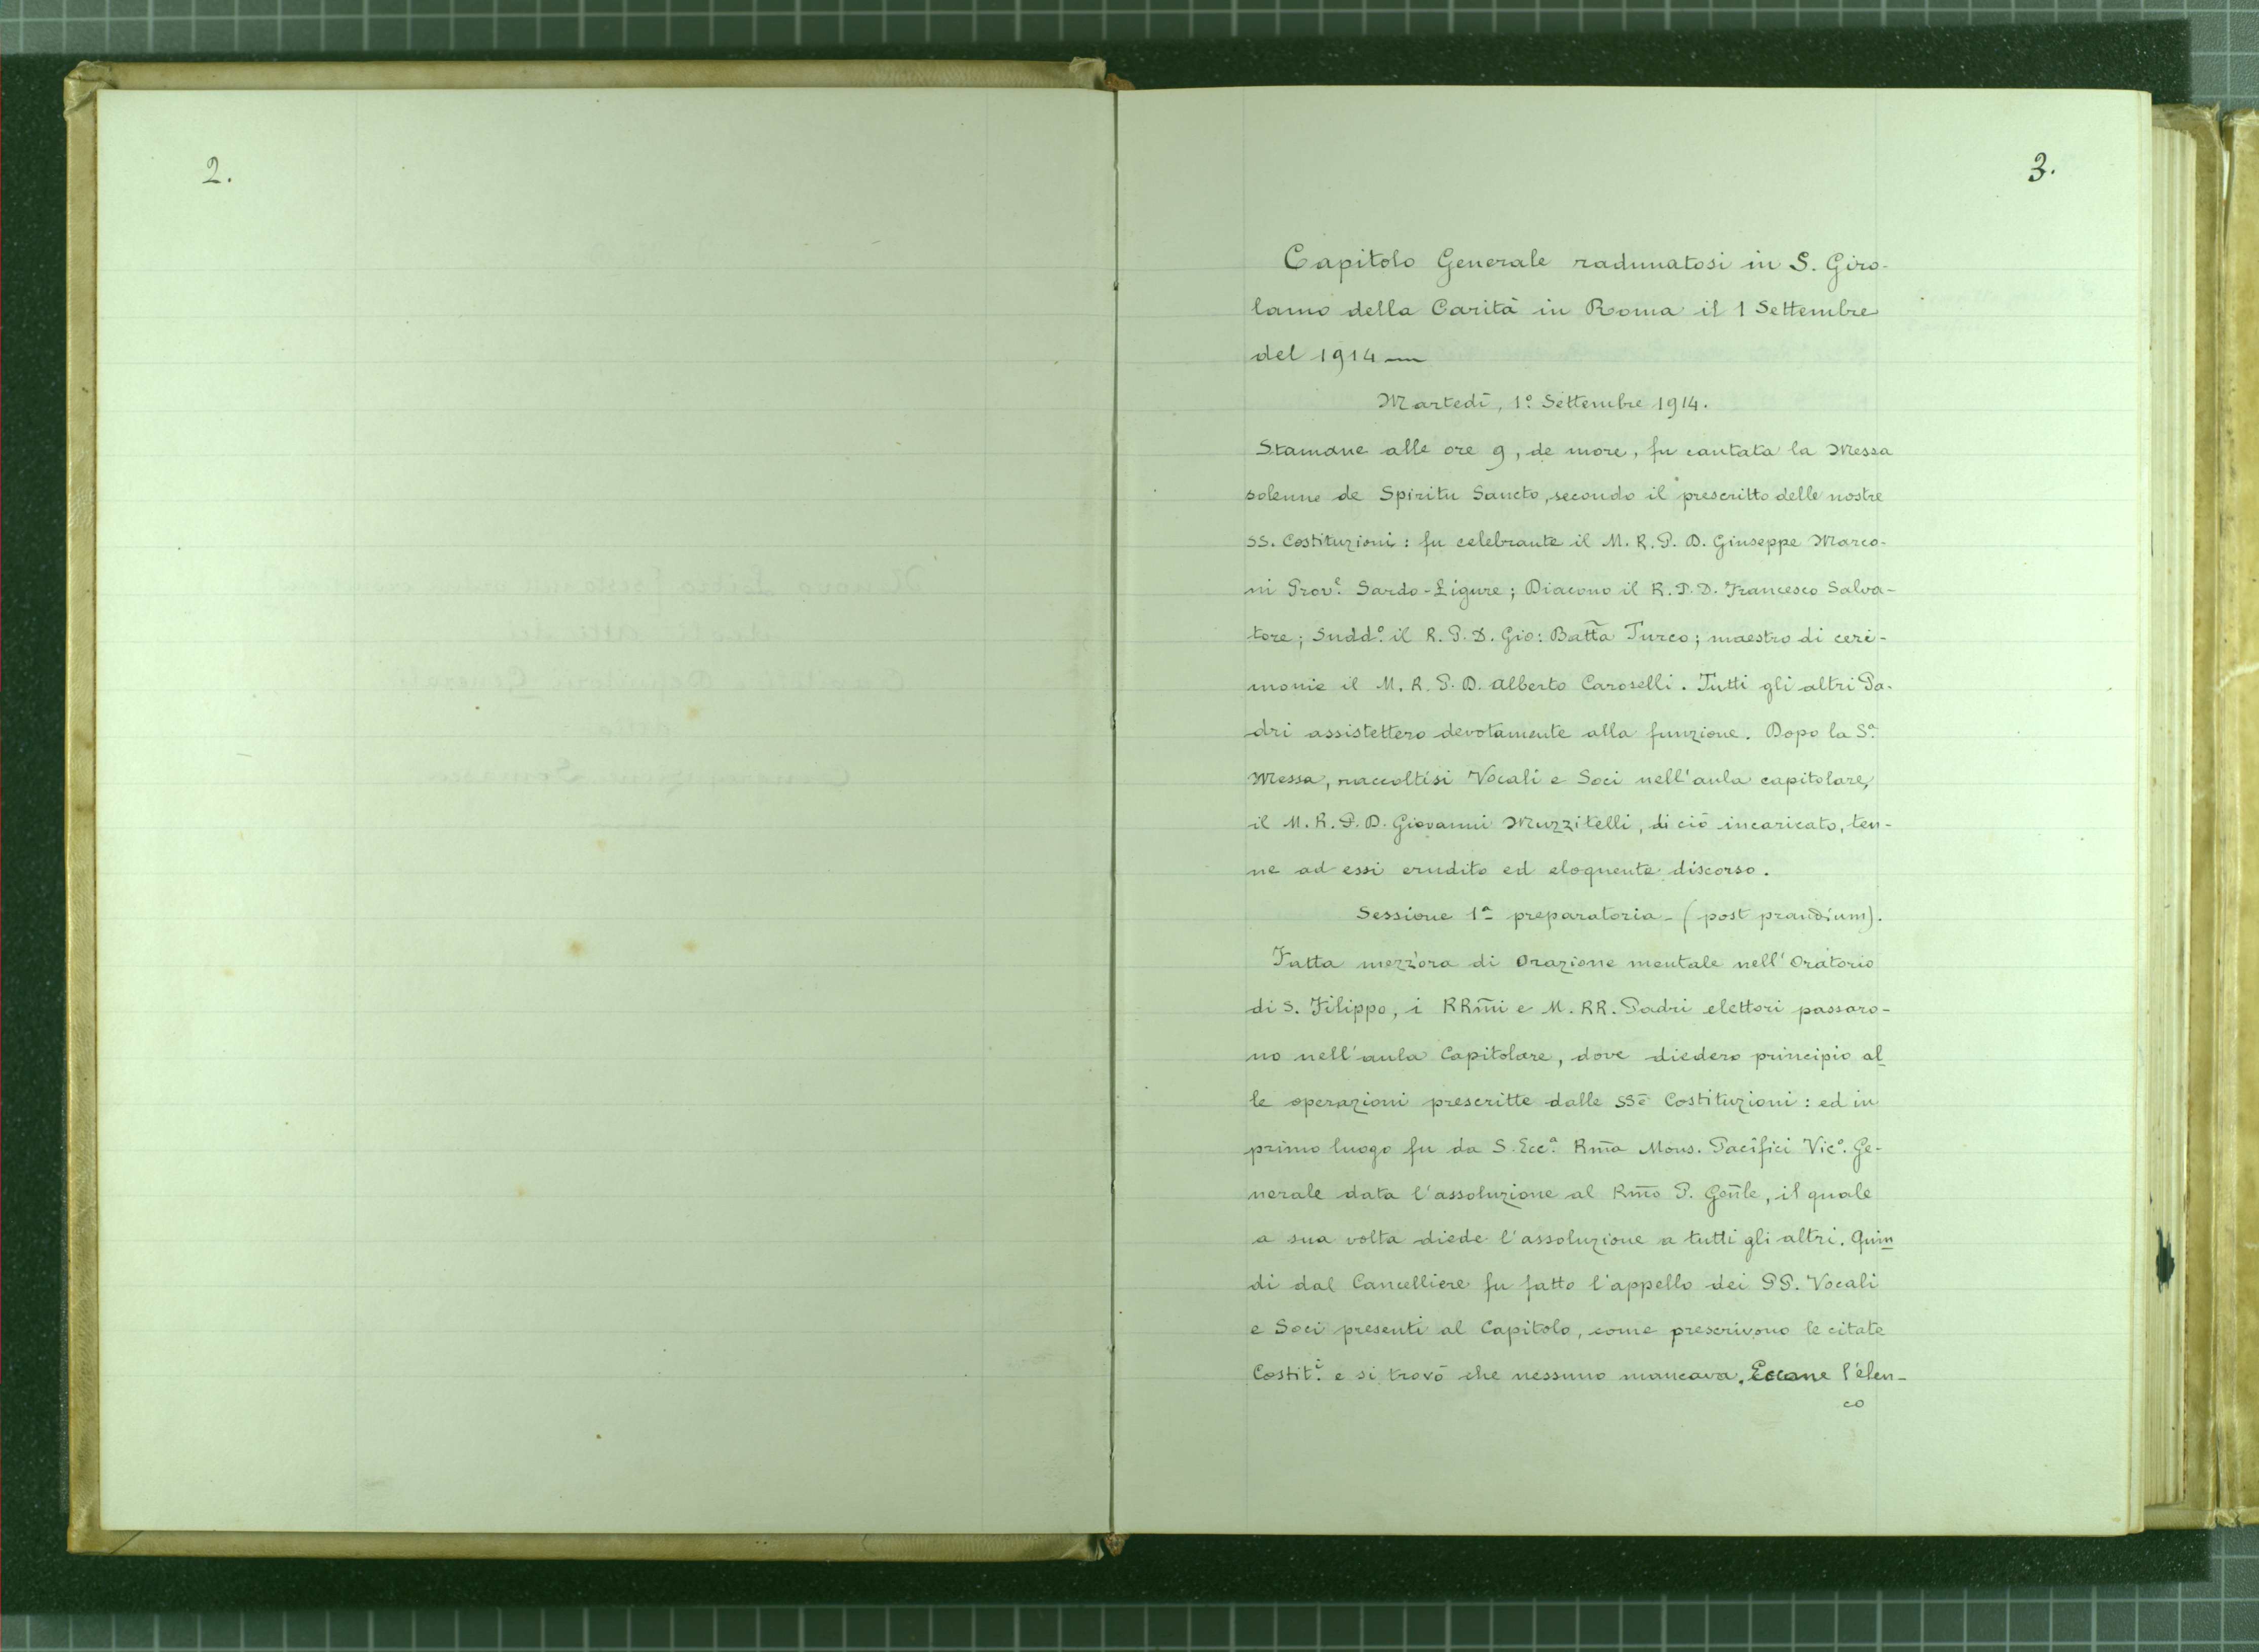 2.
3.
Capitolo Generale radunatosi in S. Giro-
lamo della Carità in Roma il 1 Settembre
del 1914 —
Martedì, 1º Settembre 1914.
Stamane alle ore 9, de more, fu cantata la Messa
solenne de Spiritu Sancto, secondo il prescritto delle nostre
SS. Costituzioni: fu celebrante il M. R. P. D. Giuseppe Marco-
ni Prov.e Sardo-Ligure; Diacono il R. P. D. Francesco Salva-
tore; Sudd.º il R. P. D. Gio: Batt̃a Turco; maestro di ceri-
monie il M. R. P. D. Alberto Caroselli. Tutti gli altri Pa-
dri assistettero devotamente alla funzione. Dopo la S.ª
Messa, raccoltisi Vocali e Soci nell'aula capitolare,
il M. R. P. D. Giovanni Muzzitelli, di ciò incaricato, ten-
ne ad essi erudito ed eloquente discorso.
Sessione 1ª preparatoria - (post prandium).
Fatta mezz'ora di Orazione mentale nell'Oratorio
di S. Filippo, i RRm̃i e M. RR. Padri elettori passaro-
no nell'aula Capitolare, dove diedero principio al
le operazioni prescritte dalle SSe Costituzioni: ed in
primo luogo fu da S. Ecc.ª Rm̃a Mons. Pacifici Vic.º Ge-
nerale data l'assoluzione al Rm̃o P. Geñle, il quale
a sua volta diede l'assoluzione a tutti gli altri. Quin
di dal Cancelliere fu fatto l'appello dei PP. Vocali
e Soci presenti al Capitolo, come prescrivono le citate
Costit.i e si trovò che nessuno mancava. Eccone l'elen-
co